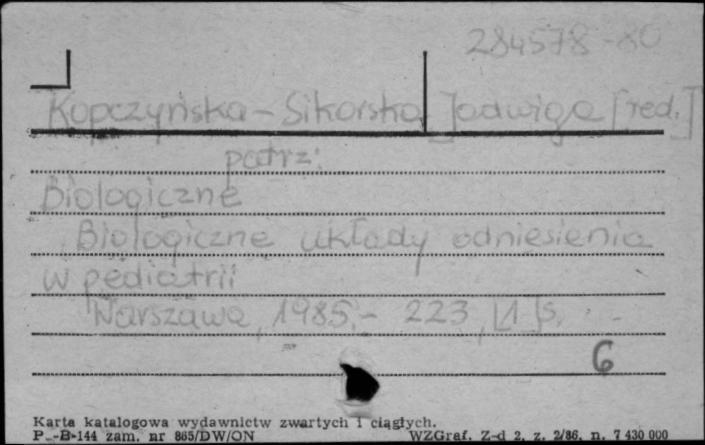 284578-80
Kopczyńska-Sikorska Jadwiga [red.]
patrz:
Biologiczne
Biologiczne układy odniesienia
w pediatrii
Warszawa, 1985.- 223, [1] s.
6
Karta katalogowa wydawnictw zwartych i ciągłych.
P.-B-144 zam. nr 865/DW/ON WZGraf. Z-d 2, z. 2/86, n. 7 430 000